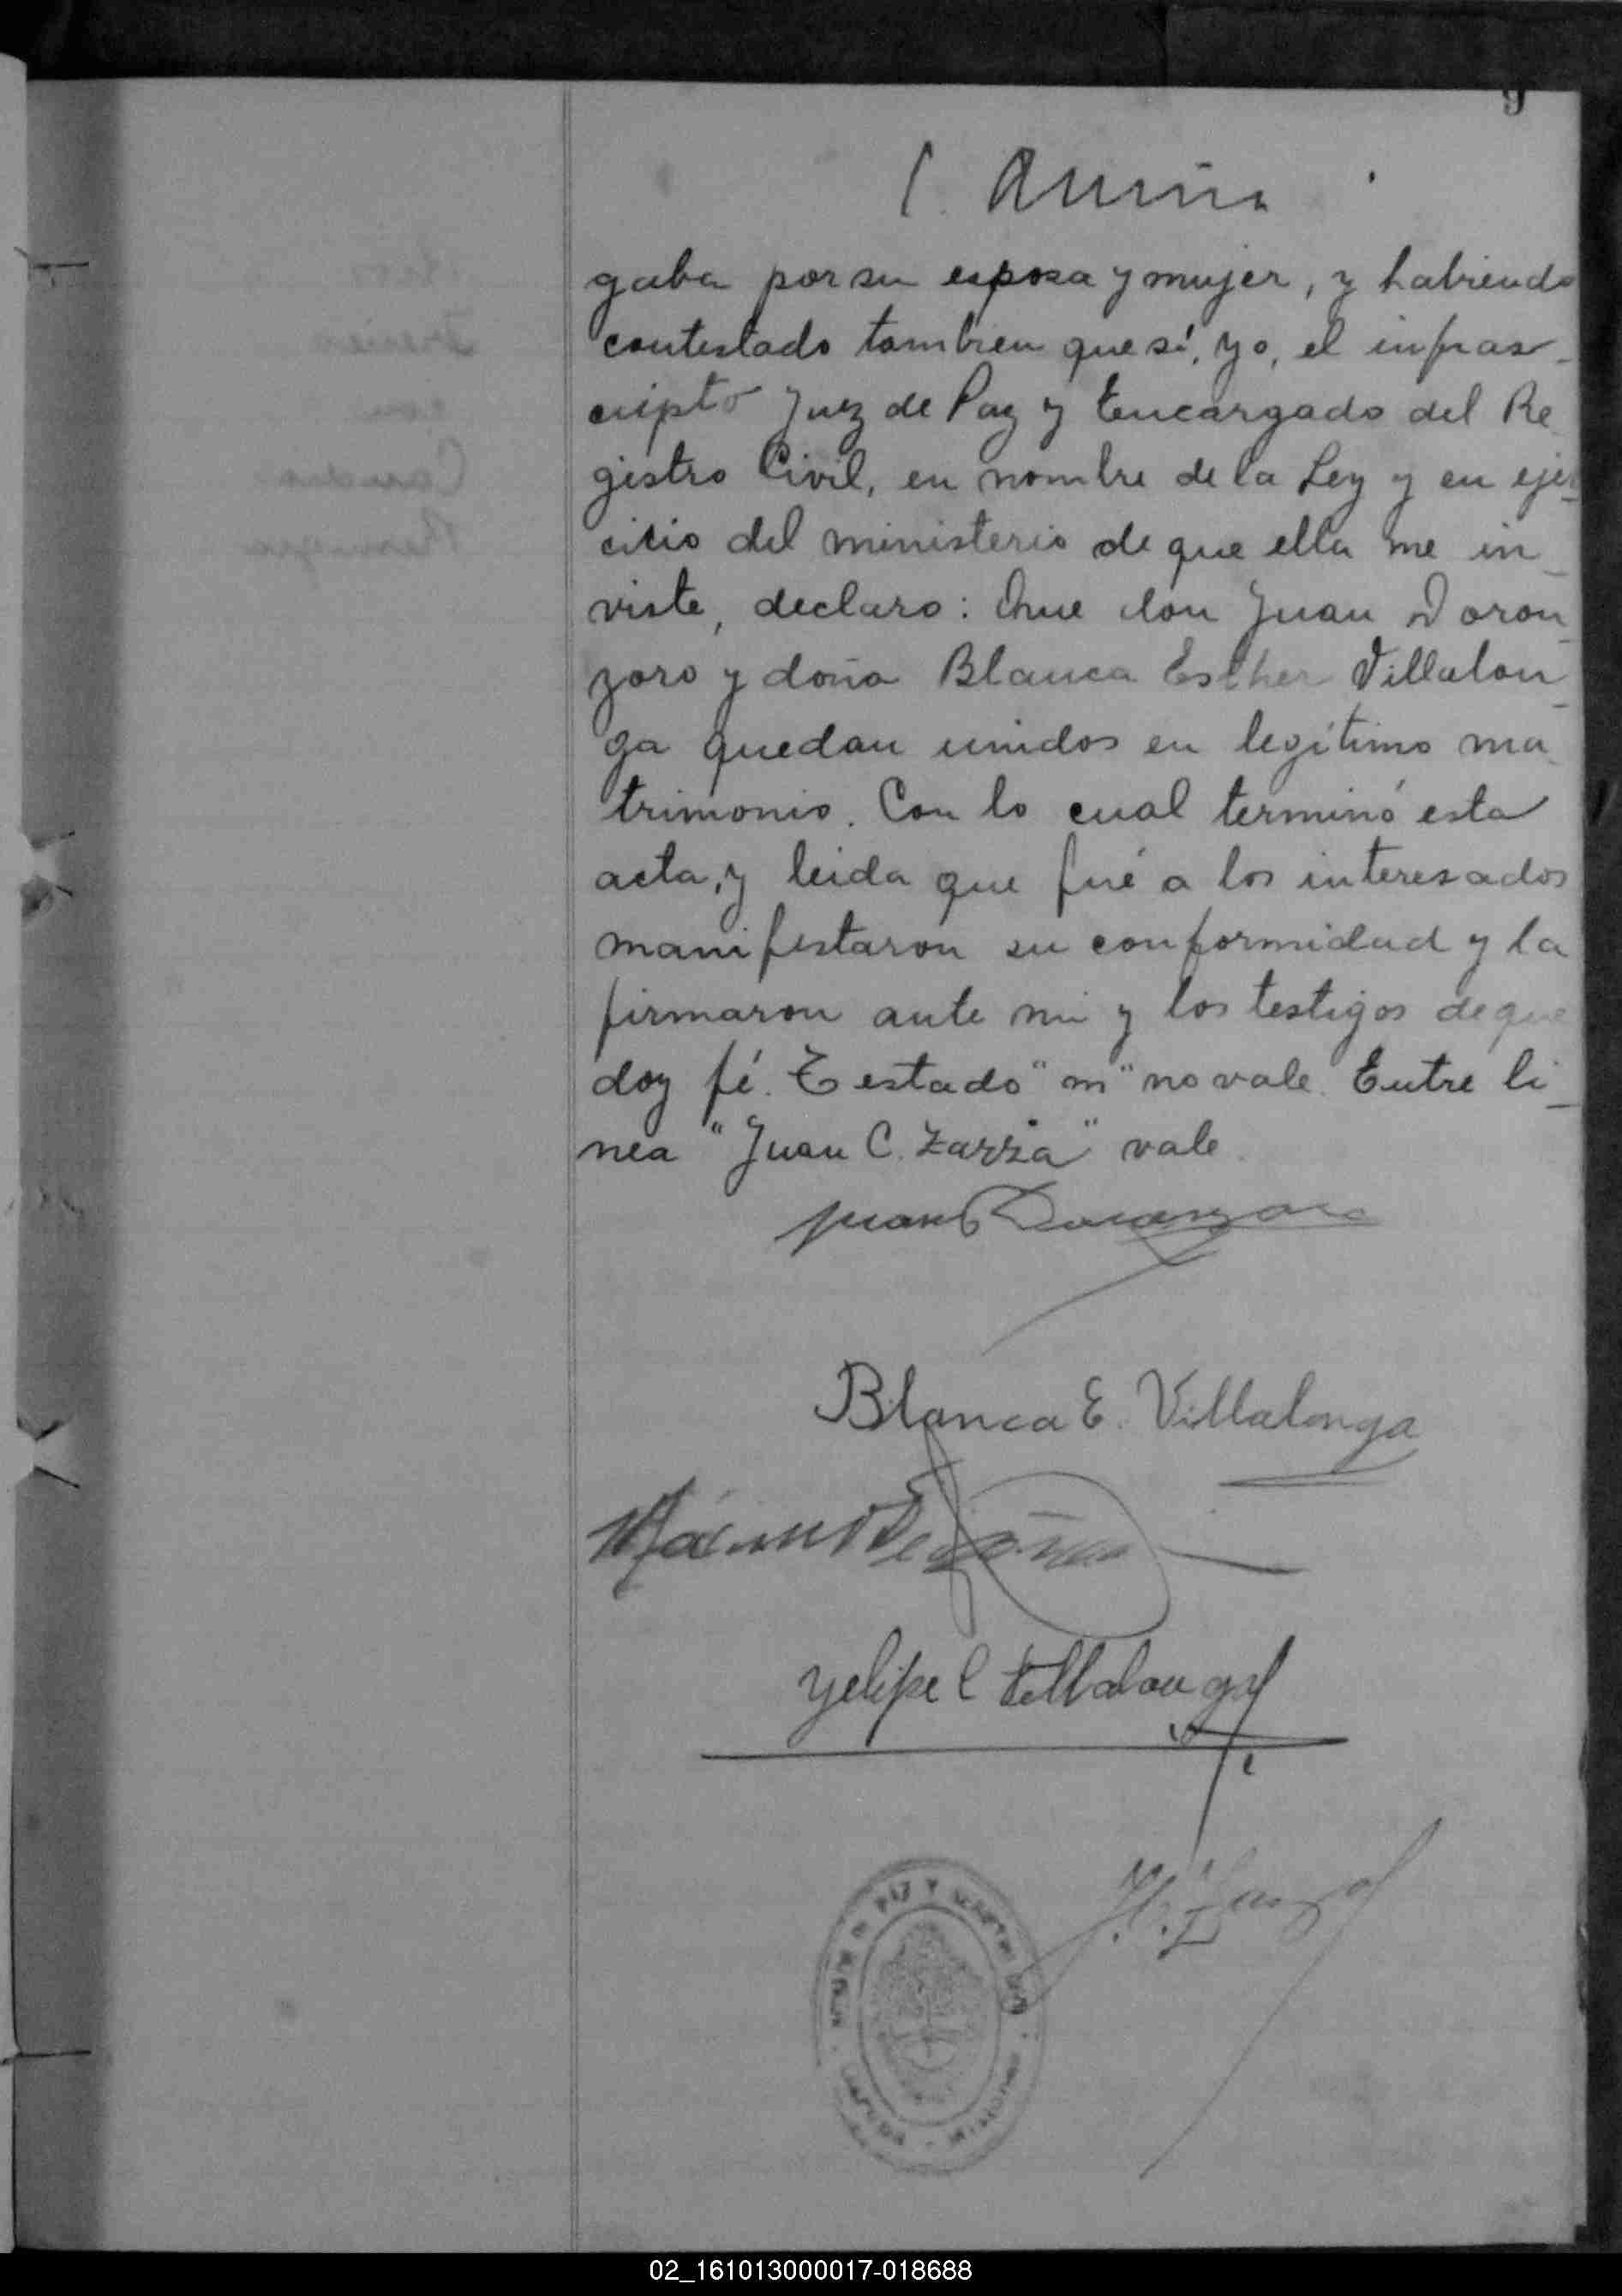 9
gaba por su esposa y mujer, y habiendo
contestado tambien que sí, yo, el infras-
cripto Juez de Paz y Encargado del Re
gistro Civil, en nombre de la Ley y en ejer-
cicio del ministerio de que ella me in-
viste, declaro: Que don Juan Doron-
zoro y doña Blanca Esther Villalon-
ga quedan unidos en legítimo ma-
trimonio. Con lo cual terminó esta
acta, y leida que fué a los interesados
manifestaron su conformidad y la
firmaron ante mi y los testigos de que
doy fé. Testado "m" no vale. Entre li-
nea "Juan C. Zarza" vale.
Juan Doronzoro
Blanca E. Villalonga
Felipe C Villalonga
PAZ Y
MISIONES
02_161013000017-018688